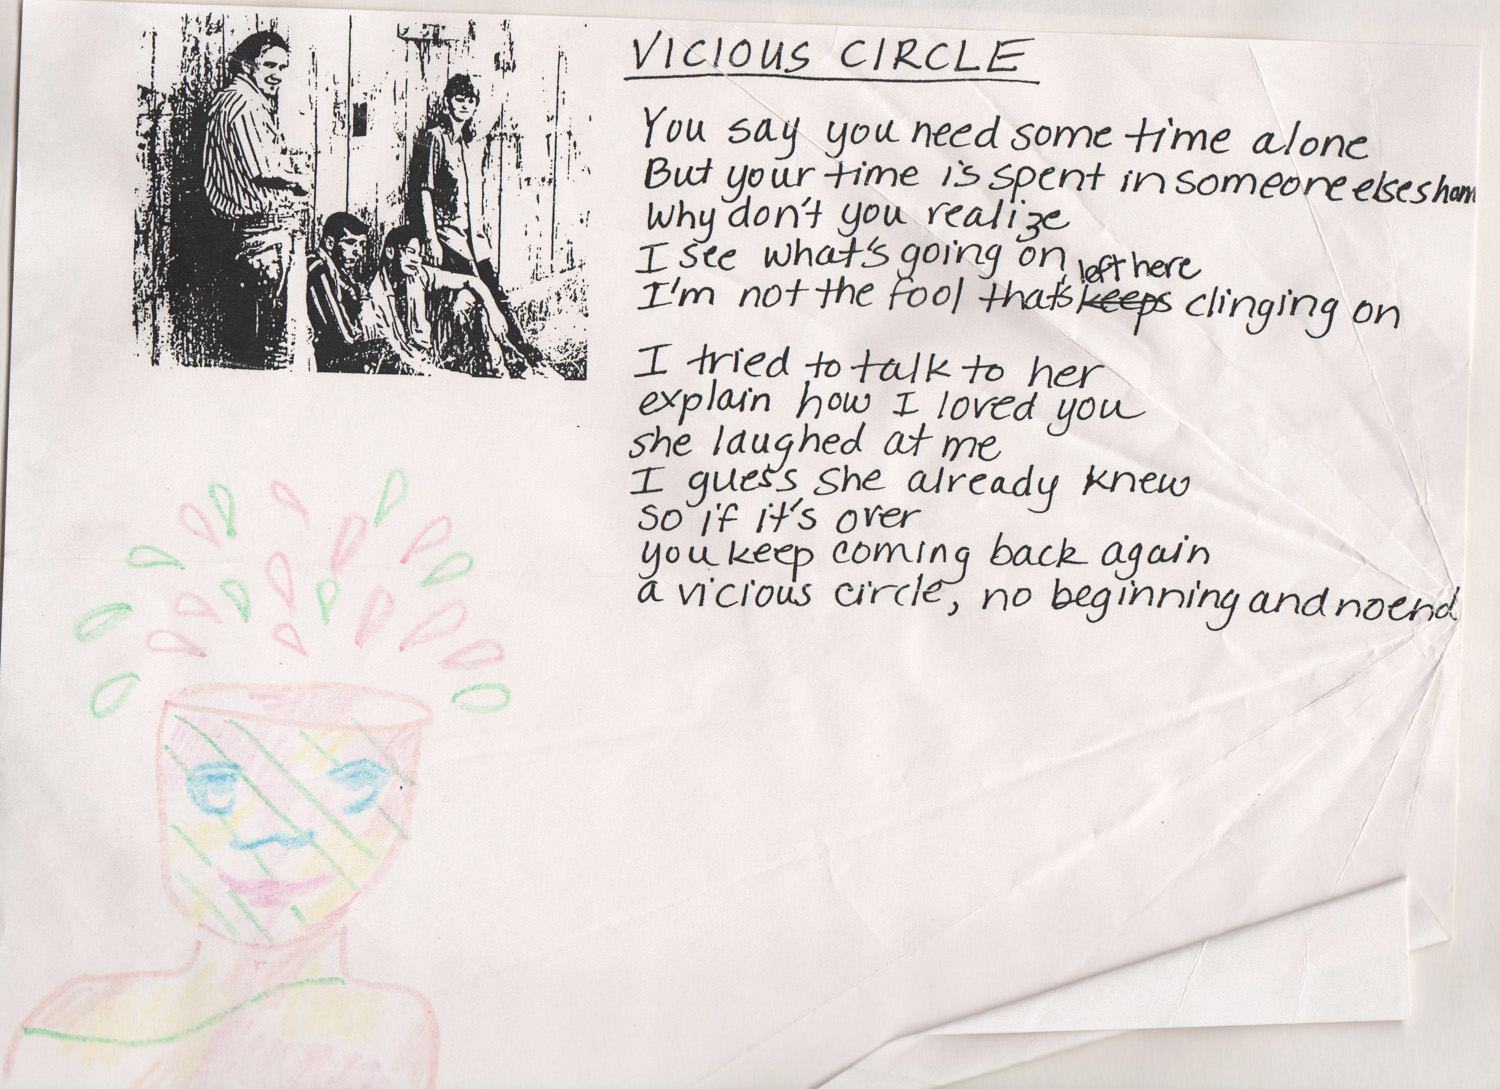 VICIOUS CIRCLE
You say you need some time alone
But your time is spent in someone elses hom
Why don't you realize
I see what's going on
left here
I'm not the fool that's keeps clinging on
I tried to talk to her
explain how I loved you
she laughed at me
I guess she already knew
so if it's over
you keep coming back again
a vicious circle, no beginning and no end